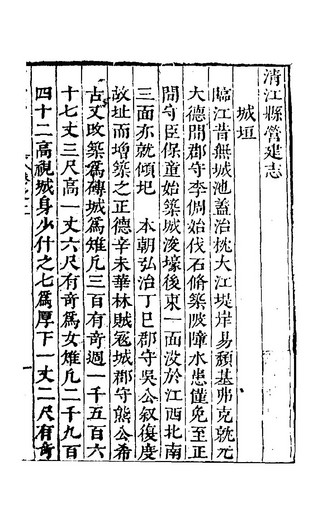 清江縣營建志
城垣
臨江昔無城池蓋治枕大江堤岸易頹基弗克就元
大德間郡守李倜始伐石脩築陂障水患僅免至正
間守臣保童始築城浚壕後東一面沒於江西北南
三面亦就傾圯　本朝弘治丁巳郡守吳公叙復度
故址而增築之正德辛未華林賊寇城郡守熊公希
古文改築爲磚城爲雉凡三百有奇週一千五百六
十七丈三尺高一丈六尺有奇爲女雉凡二千九百
四十二高視城身少什之七爲厚下一丈二尺有奇